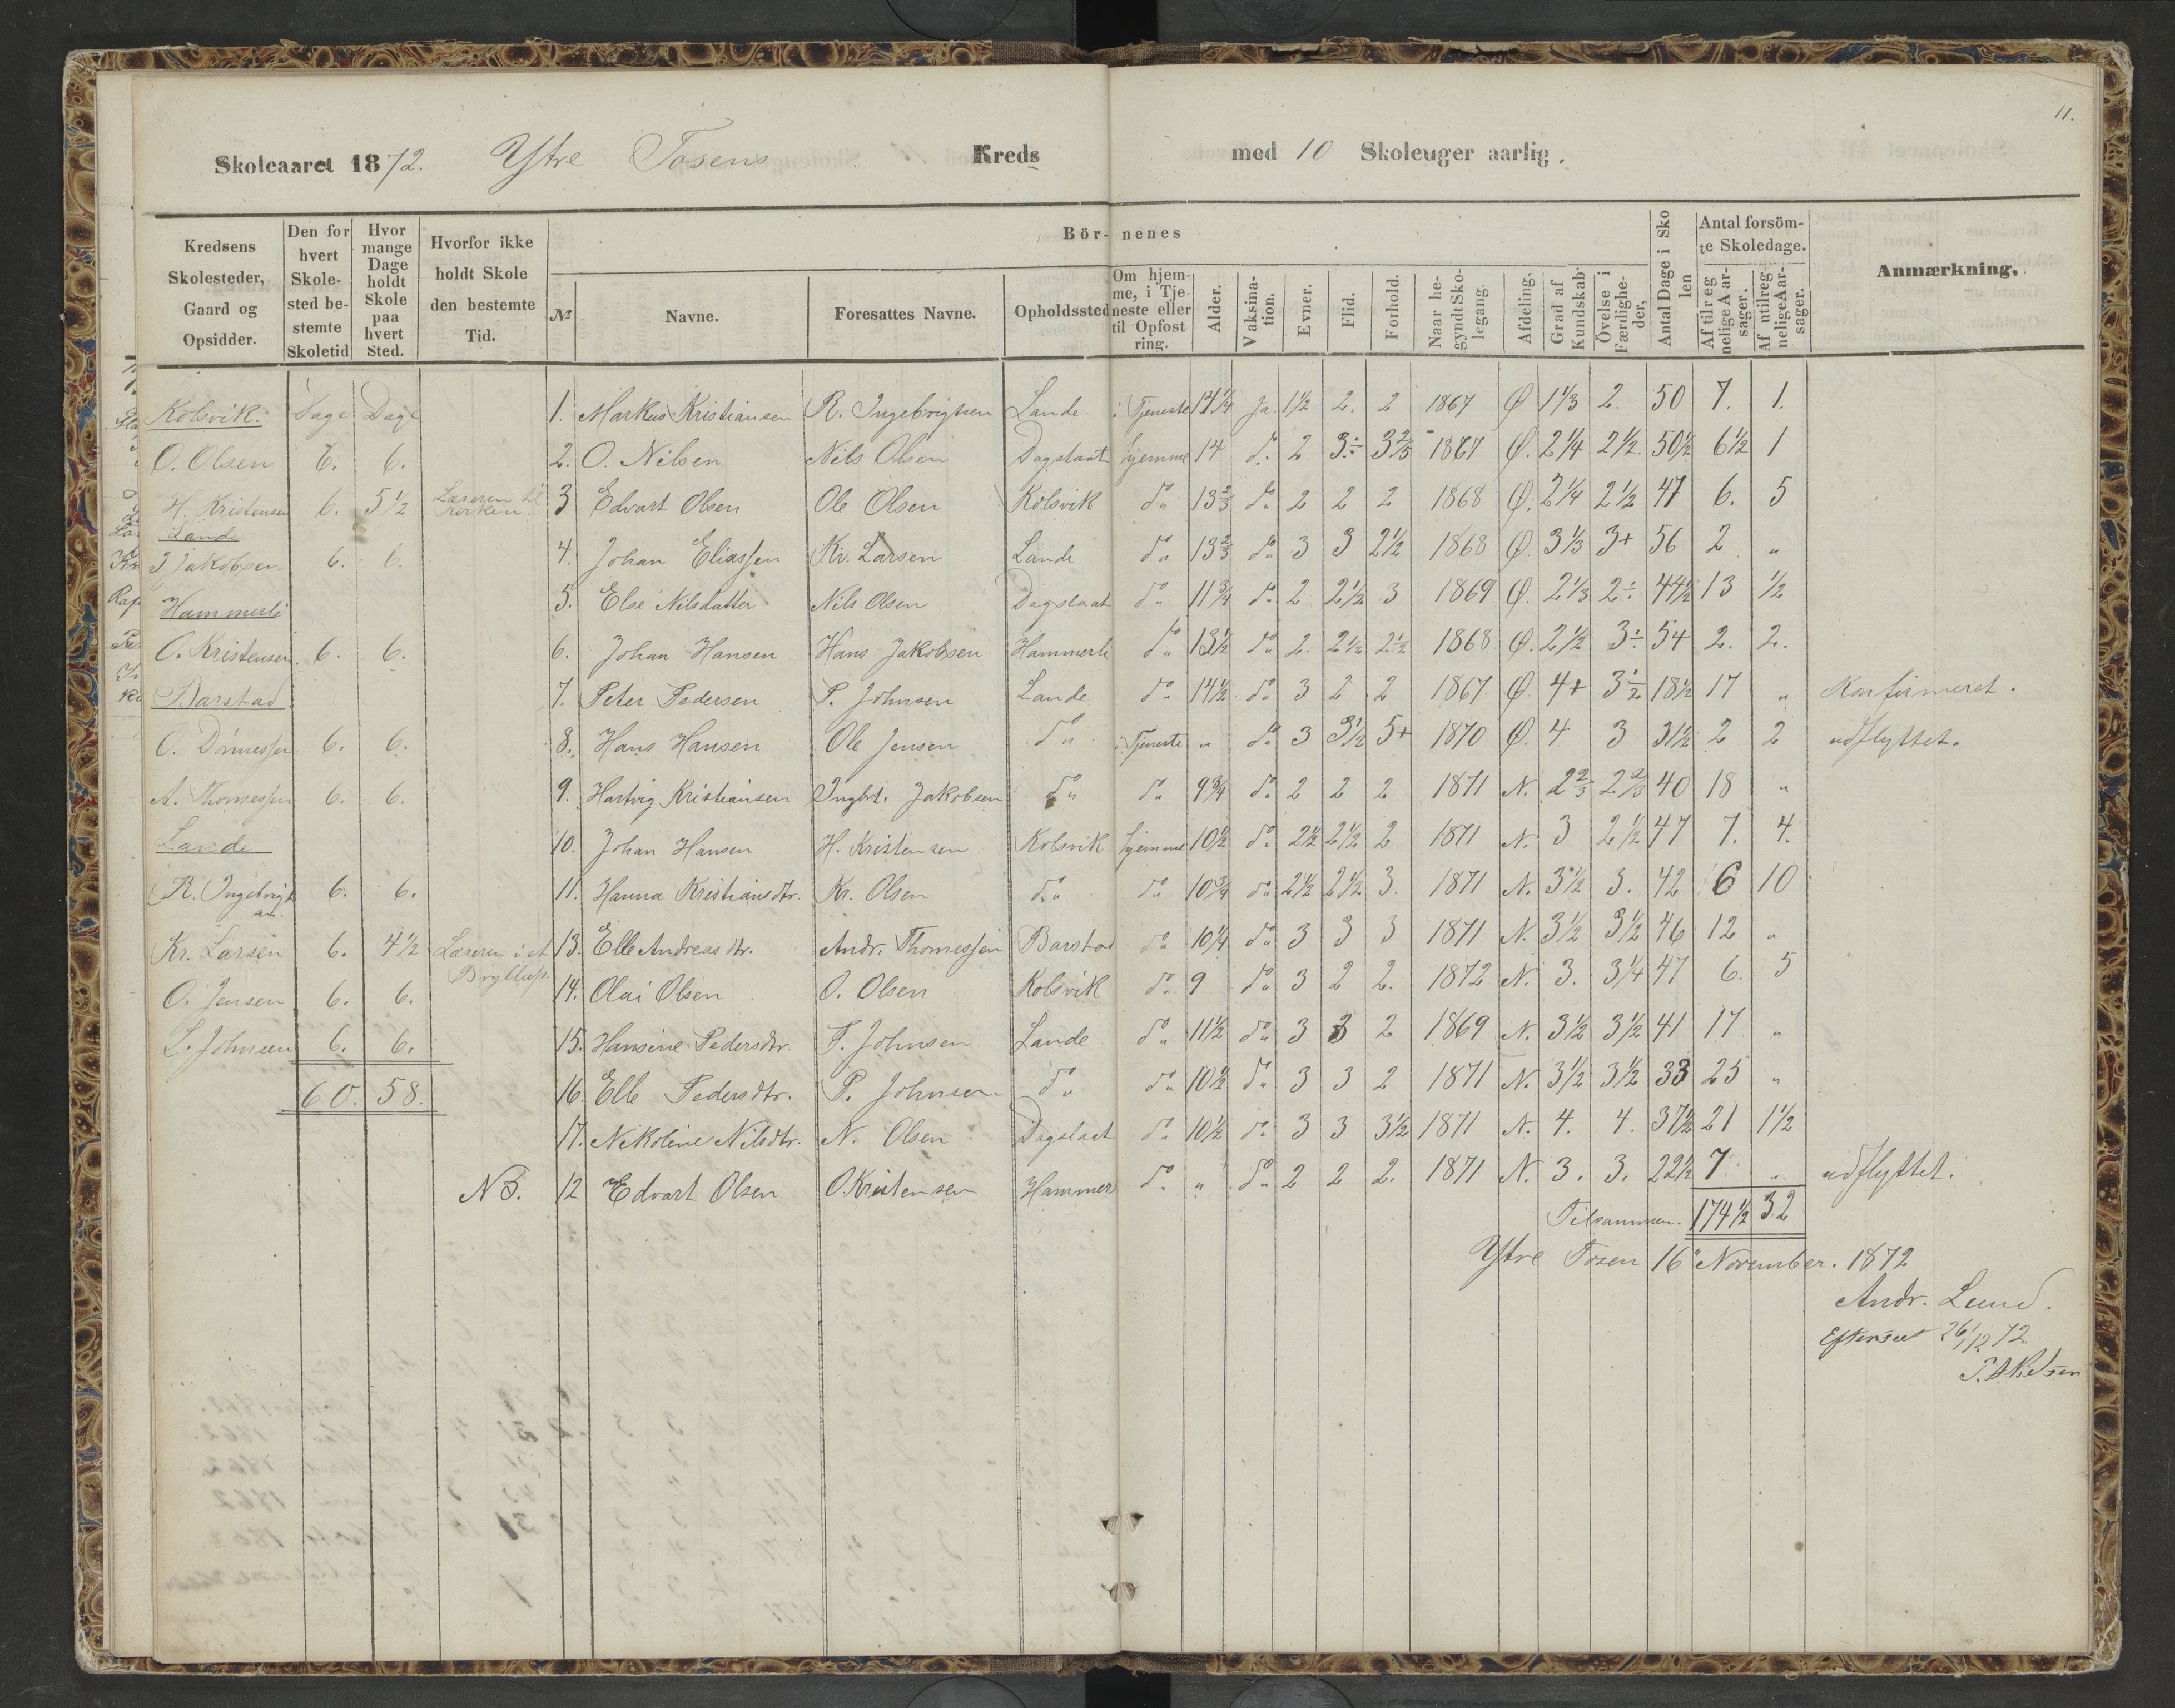 11.
Skoleaaret 1872. Ytre Tosens Kreds med 10 Skoleuger aarlig.
Kredsens Skolesteder, Gaard og Opsidder. Den for hvert Skolested bestemte Skoletid Hvor mange Dage holdt Skole paa hvert Sted. Hvorfor ikke holdt Skole den bestemte Tid. Bör- nenes Antal Dage i Skolen Antal forsöm-te Skoledage. Anmærkning.
№ Navne. Foresattes Navne. Opholdssted Om hjemme, i Tjeneste eller til Opfostring. Alder. Vaksination. Evner. Flid. Forhold. Naar begyndt Skolegang. Afdeling. Grad af Kundskab Övelse i Færdigheder, Af tilregnelige Aarsager. Af utilregnelige Aarsager.
Kolsvik. Dage Dage 1. Markus Kristiansen R. Ingebrigtsen Lande i Tjeneste 14 1/4 Ja. 1 1/2 2. 2 1867 Ø 1 1/3 2. 50 7. 1.
O. Olsen 6. 6. 2. O. Nilsen Nils Olsen Dagslaat hjemme 14 do 2 3÷ 3 2/3 1867 Ø. 2 1/4 2 1/2. 50 1/2 6 1/2 1
H. Kristensen 6. 5 1/2 Læreren til 3 Edvart Olsen Ole Olsen Kolsvik do 13 2/3 do 2 2 2 1868 Ø. 2 1/4 2 1/2 47 6. 5
Lande
J Jakobsen 6. 6. 4. Johan Eliassen Kr. Larsen Lande do 13 2/3 do 3 3 2 1/2 1868 Ø. 3 1/3 3+ 56 2 "
Hammerli 5. Else Nilsdatter Nils Olsen Dagslaat do 11 3/4 do 2 2 1/2 3 1869 Ø. 2 1/3 2÷ 44 1/2 13 1/2
O. Kristensen. 6. 6. 6. Johan Hansen Hans Jakobsen Hammerli do 13 1/2 do 2. 2 1/2 2 1/2 1868 Ø. 2 1/2 3÷ 54 2. 2.
Barstad 7. Peter Pedersen P. Johnsen Lande do 14 1/2 do 3 2 2 1867 Ø. 4+ 3 1/2 18 1/2 17 " Konfirmeret.
O. Dønnessen 6. 6. 8. Hans Hansen Ole Jensen do i Tjeneste " do 3 3 1/2 5+ 1870 Ø. 4 3 31 1/2 2 2 udflyttet.
A. Thomessen 6. 6. 9. Hartvig Kristiansen Ingbrt. Jakobsen do do 9 3/4 do 2 2 2 1871 N. 2 2/3 2 2/3 40 18 "
Lande 10. Johan Hansen H. Kristensen Kolsvik hjemme 10 1/2 do 2 1/2 2 1/2 2 1871 N. 3 2 1/2 47 7. 4.
R. Ingebrigtsen. 6. 6. 11. Hanna Kristiansdtr. Kr. Olsen do do 10 3/4 do 2 1/2 2 1/2 3. 1871 N. 3 1/2 3. 42 6 10
Kr. Larsen 6. 4 1/2 Læreren i et Bryllup. 13. Elle Andreasdtr. Andr. Thomessen Barstad do 10 1/4 do 3 3 3 1871 N. 3 1/2 3 1/2 46 12 "
O. Jensen 6. 6. 14. Olai Olsen O. Olsen Kolsvik do 9 do 3 2 2. 1872 N. 3. 3 1/4 47 6. 5
L. Johnsen 6. 6. 15. Hansine Pedersdtr. P. Johnsen Lande do 11 1/2 do 3 3 2 1869 N. 3 1/2 3 1/2 41 17 "
60. 58. 16. Elle Pedersdtr. P. Johnsen do do 10 1/2 do 3 3 2 1871 N. 3 1/2 3 1/2 33 25 "
17. Nikoline Nilsdtr. N. Olsen Dagslaat do 10 1/2 do 3 3 3 1/2 1871 N. 4. 4. 37 1/2 21 1 1/2
NB. 12 Edvart Olsen O. Kristensen Hammer do " do 2 2 2. 1871 N. 3. 3. 22 1/2 7 " udflyttet.
Tilsammen. 174 1/2 32
Ytre Tosen 16 November. 1872
Andr. Lund.
Efterseet 26/12 72